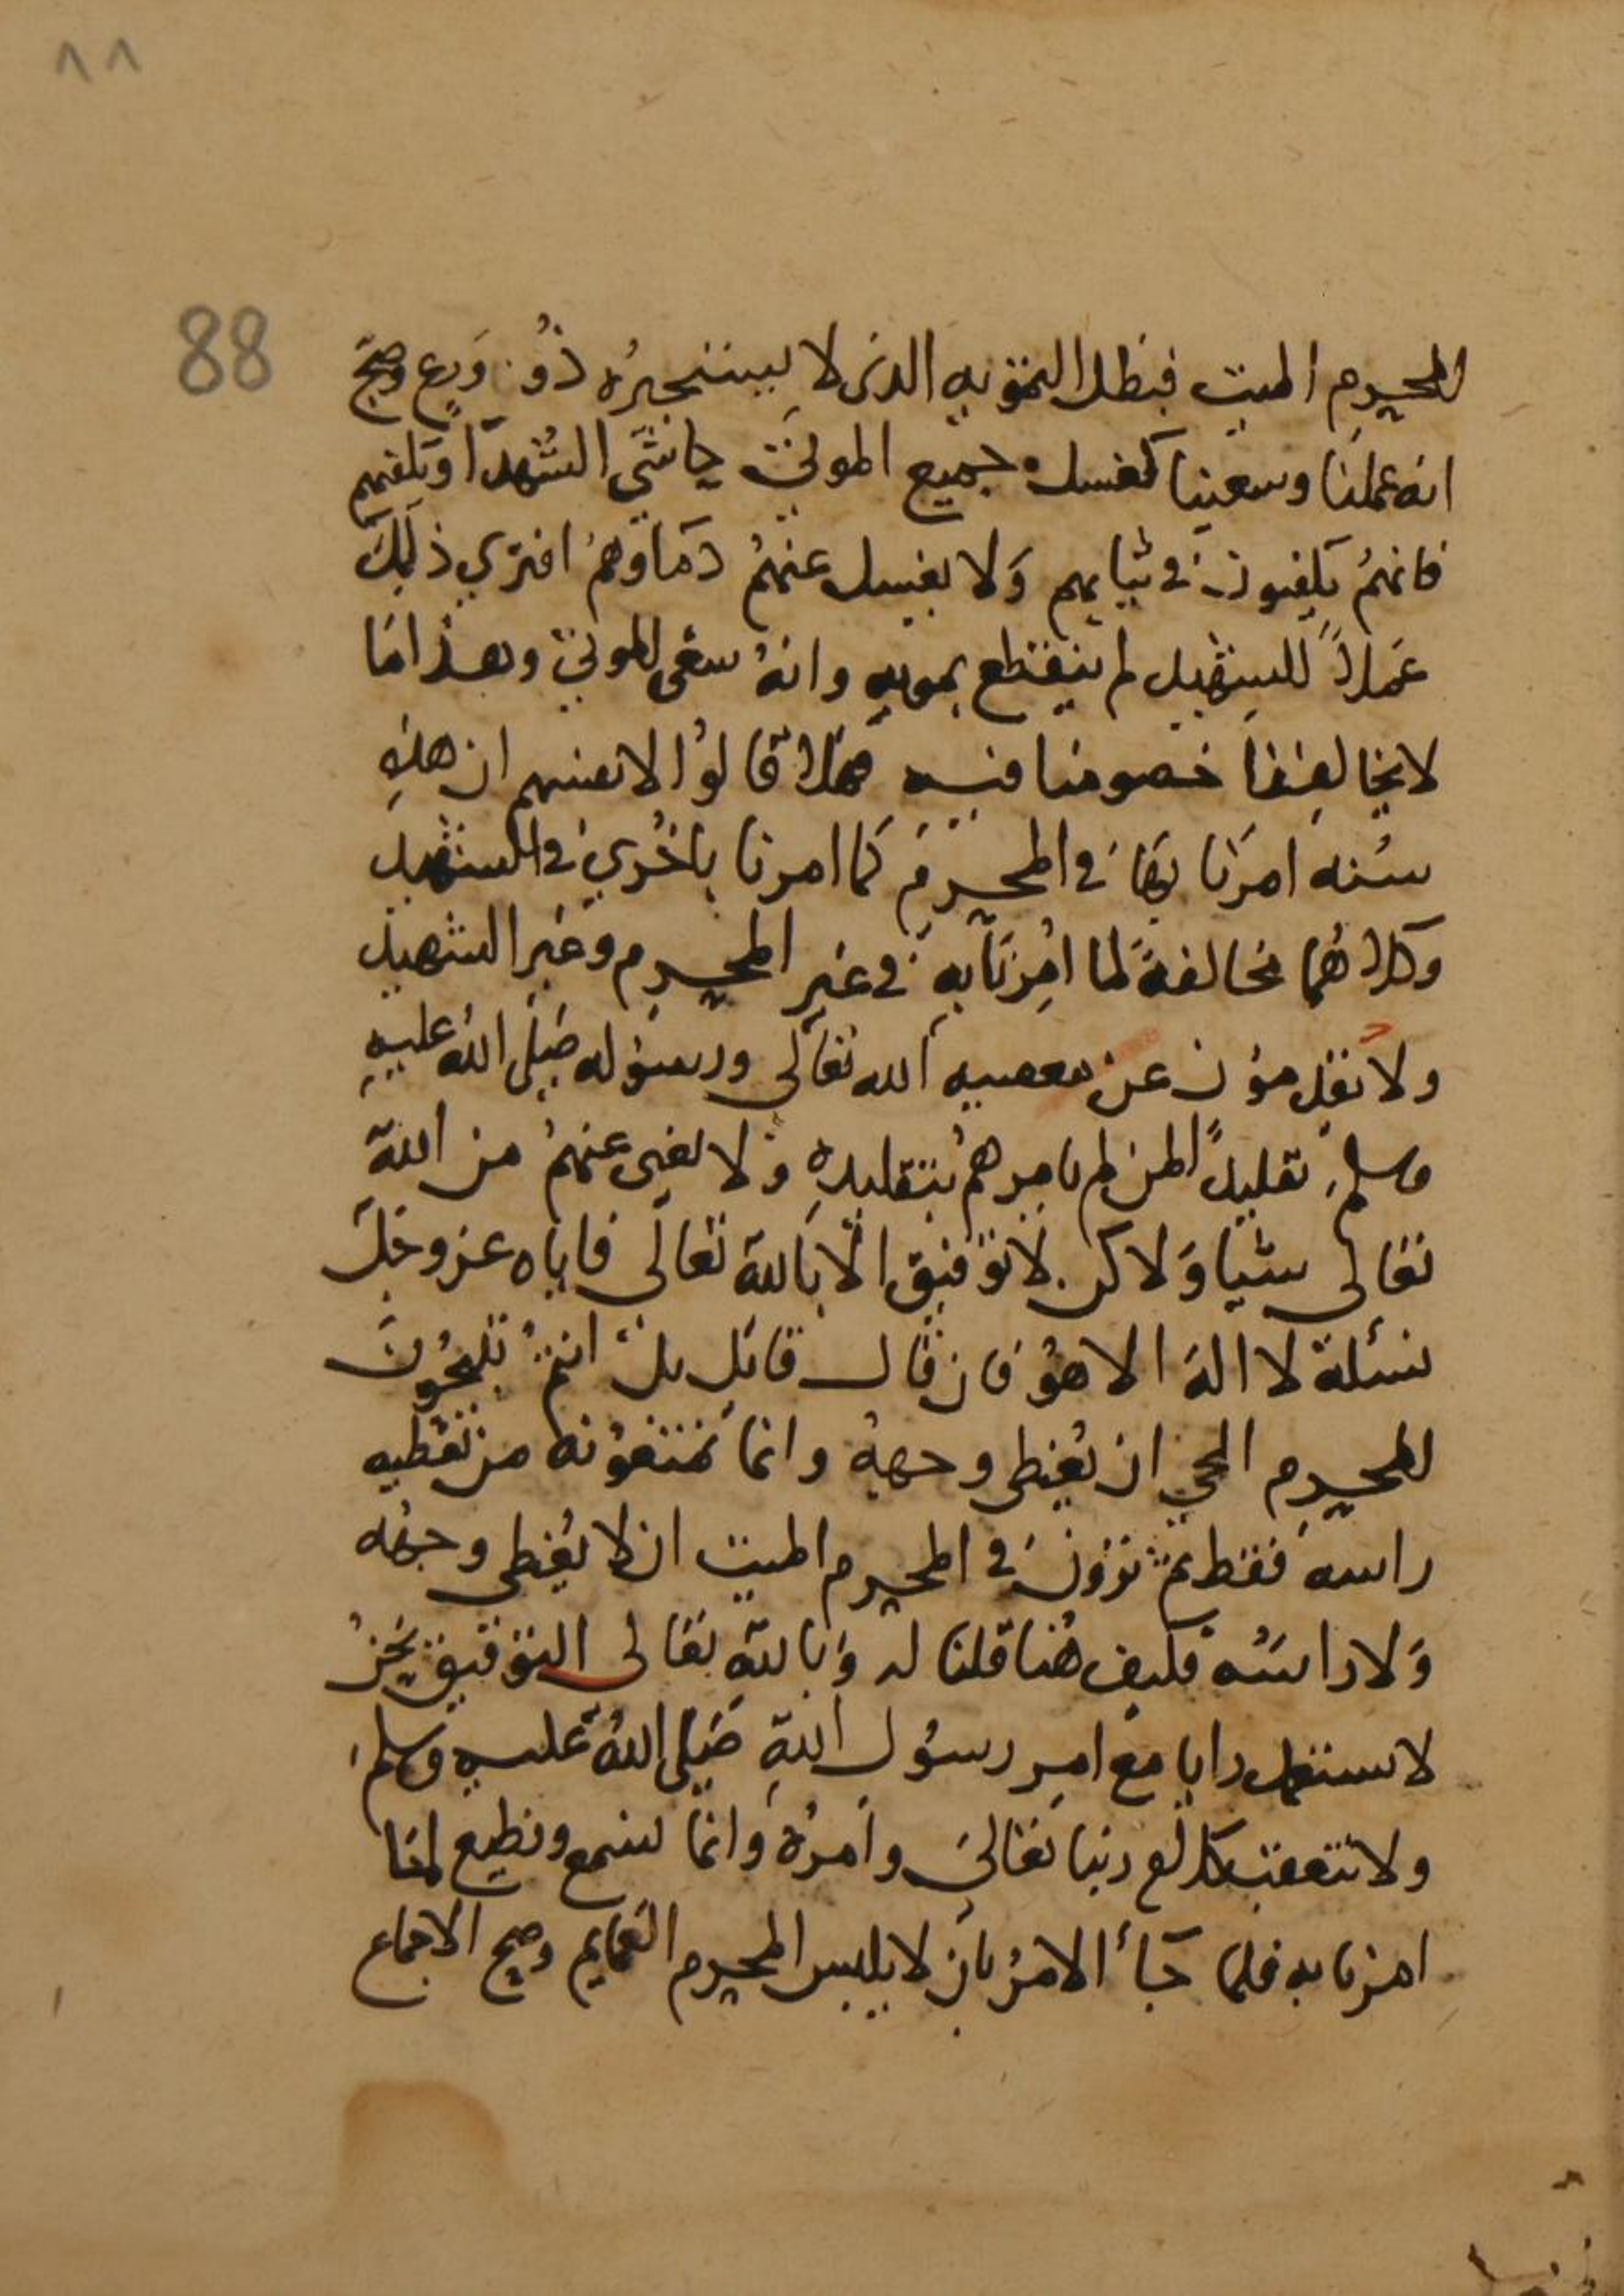 ٨٨
88
للمحرم الميت فبطل التمويه الذى لا يستجيزه ذو ورع وصح
انه عملنا وسعينا كغسل جميع الموتى حاشى الشهدا وتكفنهم
فانهم يكفنون في ثيابهم ولا يغسل عنهم دماوهم افترى ذلك
عملاً للشهيد لم ينقطع بموته وانه سعى للموتى وهذا ما
لا يخالفنا خصومنا فيه فهلا قالوا لانفسهم ان هذه
سنه امرنا بها في المحرم كما امرنا باخرى في الشهيد
وكلاهما مخالفة لما امرنا به في غير المحرم وغير الشهيد
ولا تقدمون عن معصيه الله تعالى ورسوله صلى الله عليه
وسلم تقليداً لمن لم يامرهم بتقليده ولا يغنى عنهم من الله
تعالى شيا ولاكن لا توفيق الا بالله تعالى فاياه عز وجل
نسئله لا اله الا هو فان قال قائل بل انتم تبيحون
للمحرم الحي ان يغطى وجهه وانما تمنعونه من تغطيه
راسه فقط ثم ترون في المحرم الميت ان لا يغطى وجهه
ولا راسه فكيف هذا قلنا له وبالله تعالى التوفيق نحن
لا نستعمل رايا مع امر رسول الله صلى الله عليه وسلم
ولا نتعقب كلام ربنا تعالى وامره وانما نسمع ونطيع لما
امرنا به فلما جأ الامر بان لا يلبس المحرم العمايم وصح الاجماع